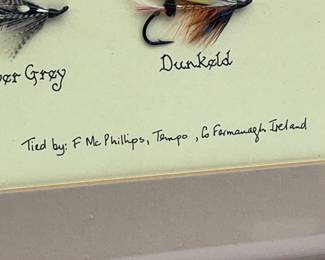 Grey
Dunkeld
Tied by: F Mc Phillips, Tempo, Co Fermanagh Ireland